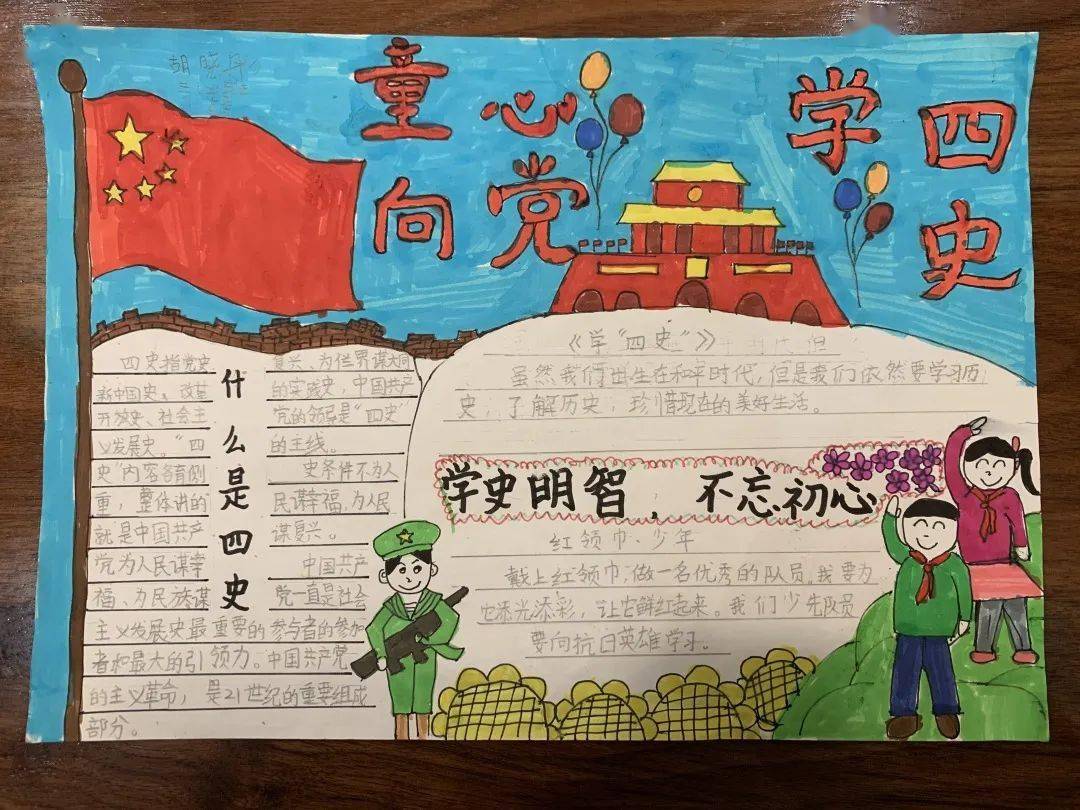 胡晓年
童心
向党
学四
史
四史指党史
新中国史、改革
开放史、社会主
义发展史。"四
史"内容各有侧
重，整体讲的
就是中国共产
党为人民谋幸
福、为民族谋
复兴、为世界谋大同
的实践史，中国共产
党的领导是"四史"
的主线。
史条件不为人
民谋幸福，为人民
谋复兴。
中国共产
党一直是社会
主义发展史最重要的参与者的参加
者和最大的引领力。中国共产党
的主义革命，是21世纪的重要组成
部分。
什么是四史
《学"四史"》
虽然我们出生在和平时代，但是我们依然要学习历
史，了解历史，珍惜现在的美好生活。
学史明智，不忘初心
红领巾、少年
戴上红领巾，做一名优秀的队员。我要为
它添光添彩，让它鲜红起来。我们少先队员
要向抗日英雄学习。